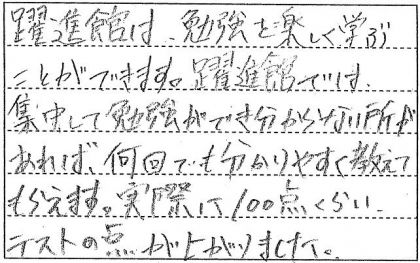 躍進館は、勉強を楽しく学ぶ
ことができます。躍進館では、
集中して勉強ができ分からない所が
あれば、何回でも分かりやすく教えて
もらえます。実際に100点くらい
テストの点が上がりました。